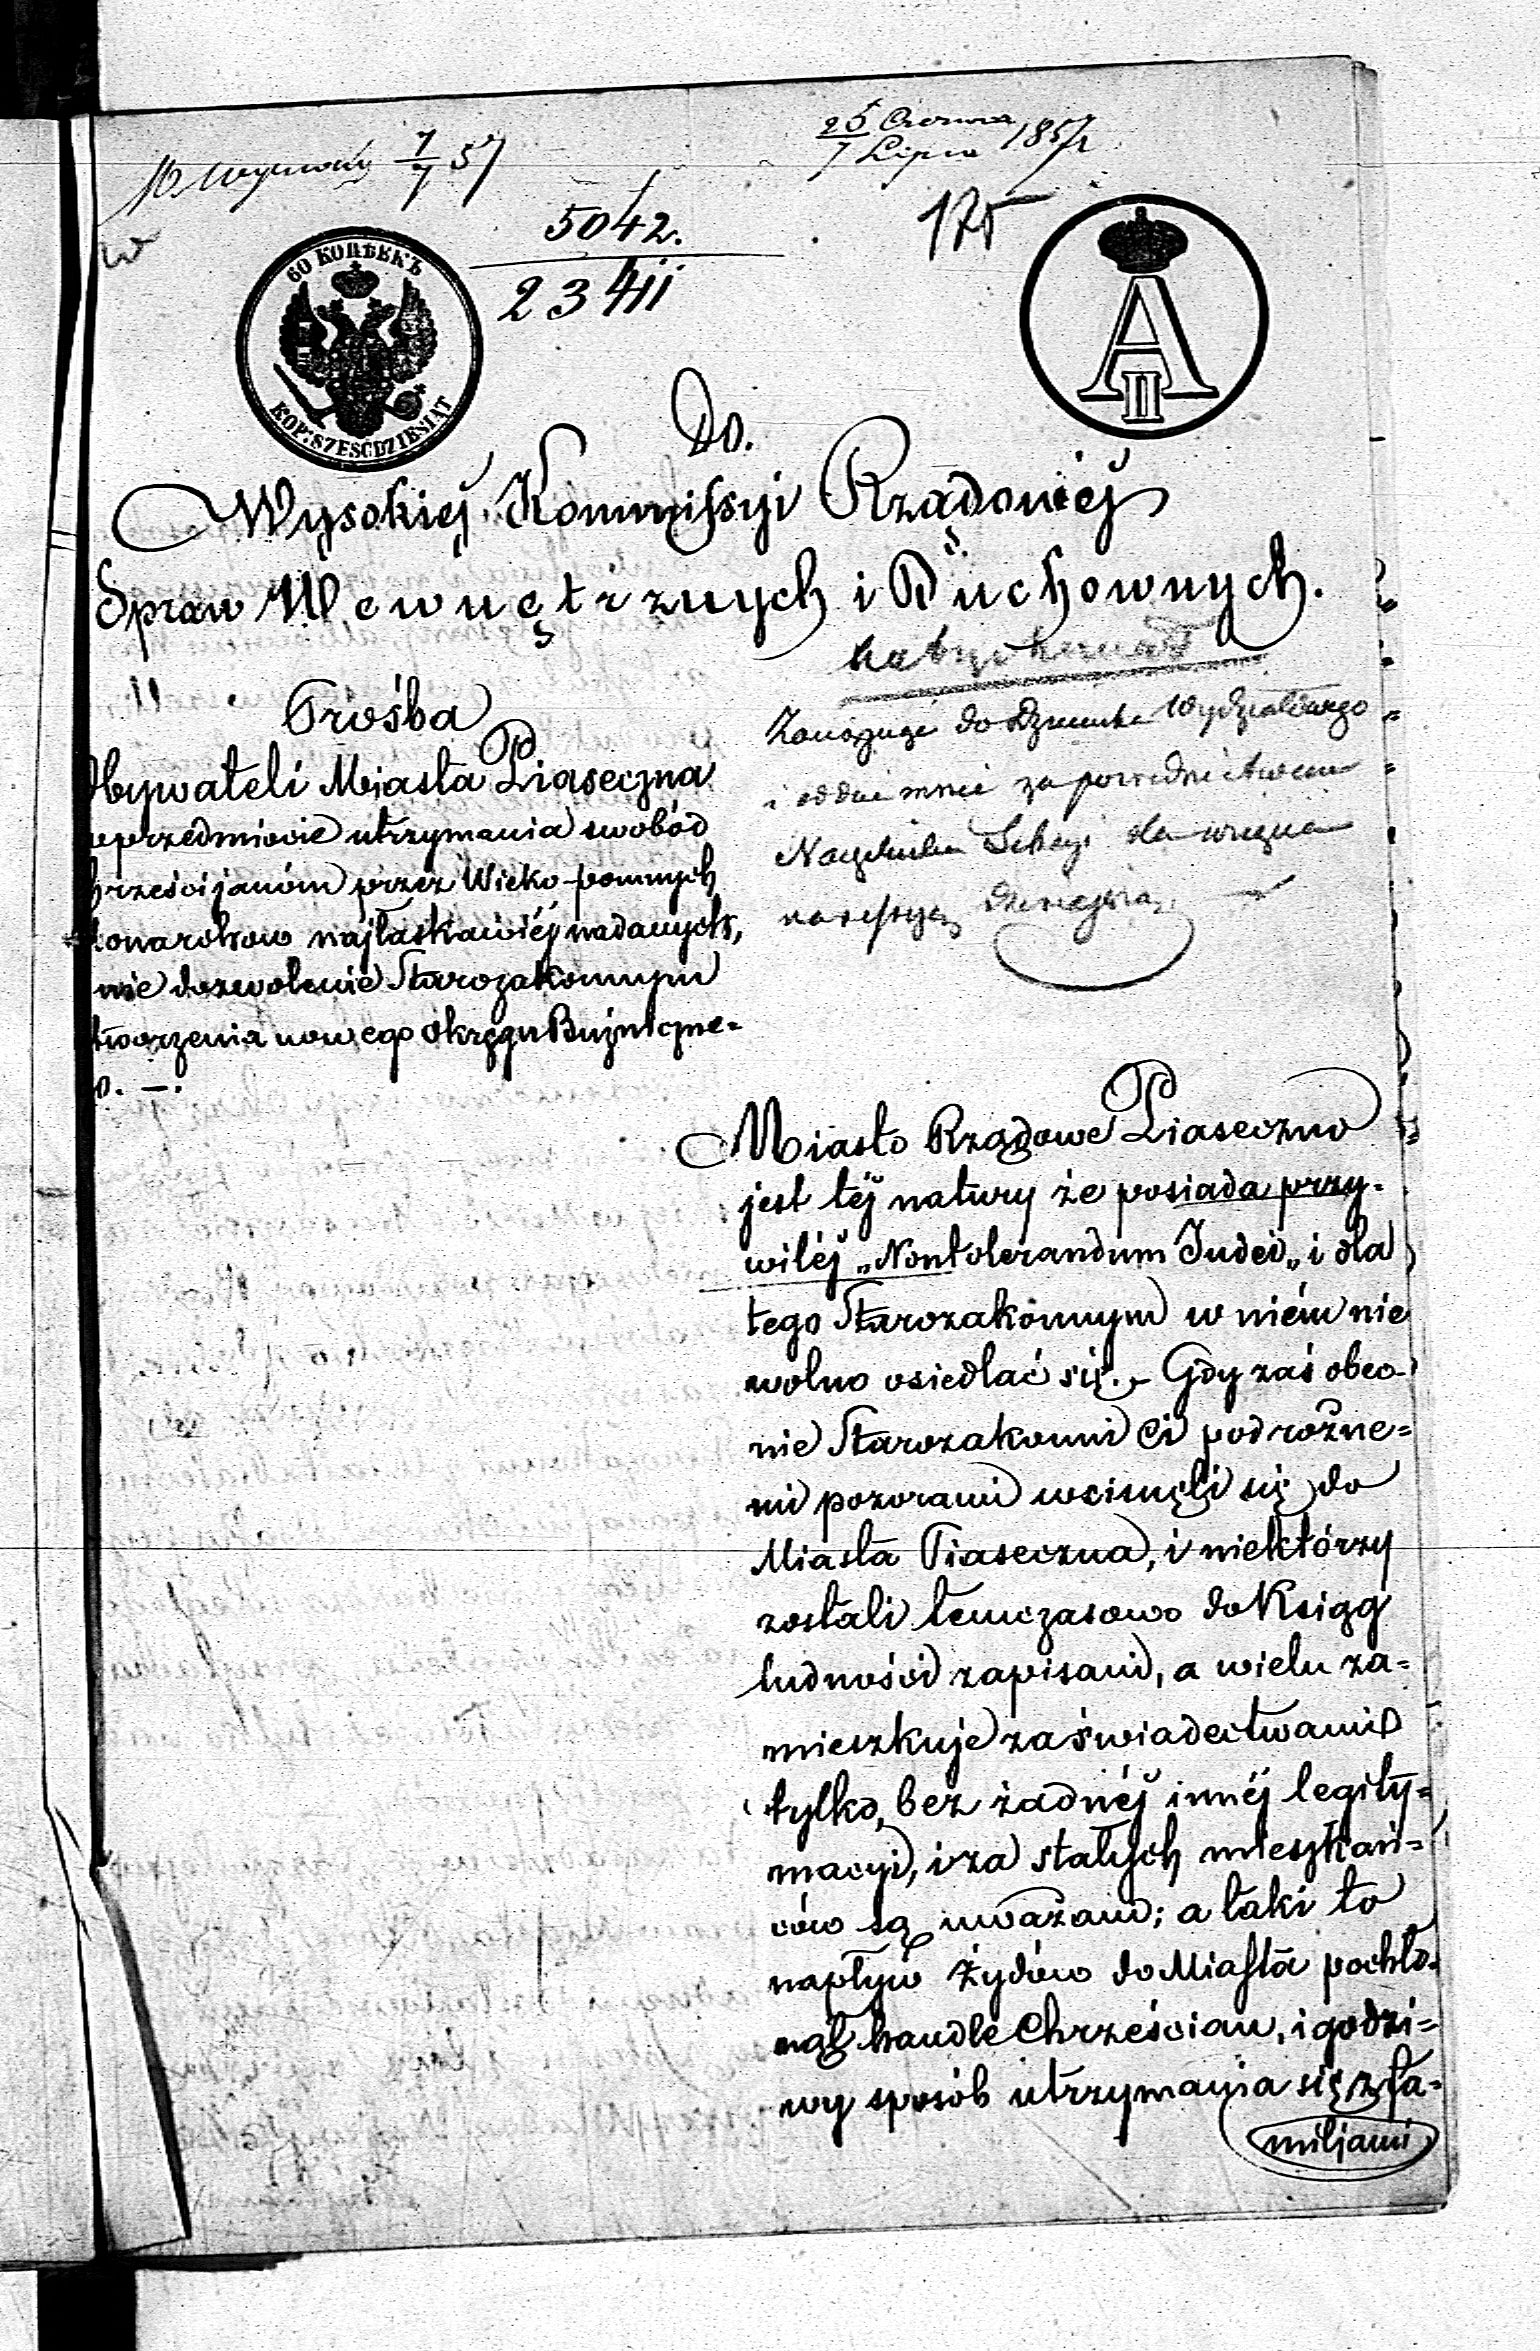 7/7 57
25 Czerwca
7 Lipca 1857 r
175
5042.
23411
60 КОПѢЕКЪ
KOP: SZEŚĆDZIESIĄT
A II
Do.
Wysokiéj Kommissyi Rządowéj
Spraw Wewnętrznych i Duchownych.
Prośba
Obywateli Miasta Piaseczna
przedmiocie utrzymania swobód
hrześcijanóm przez Wieko-pomnych
onarchow najłaskawiéj nadanych,
nie dozwolenie Starozakonnym
tworzenia nowego okręgu Bużniczne-
o. —.
do Dziennika Wydziałowego
i odda mnie za pośrednictwem
Naczelnika Sekcyi
Miasto Rządowe Piaseczno
jest téj natury że posiada przy-
wiléj „Nontolerandum Judei„ i dla
tego Starozakonnym w niém nie
wolno osiedlać się. - Gdy zaś obec-
nie Starozakonni Ci pod rożne=
mi pozorami wcisnęli się do
Miasta Piaseczna, i niektórzy
zostali temczasowo do Ksiąg
ludności zapisani, a wielu za=
mieszkuje za świadectwami
tylko, bez żadnéj innéj legity=
macyi, i za stałych mieszkań=
ców są uważani; a taki to
napływ Żydów do Miasta pochło-
nął handle Chrześcian, i godzi=
wy sposób utrzymania się z fa-
miljami